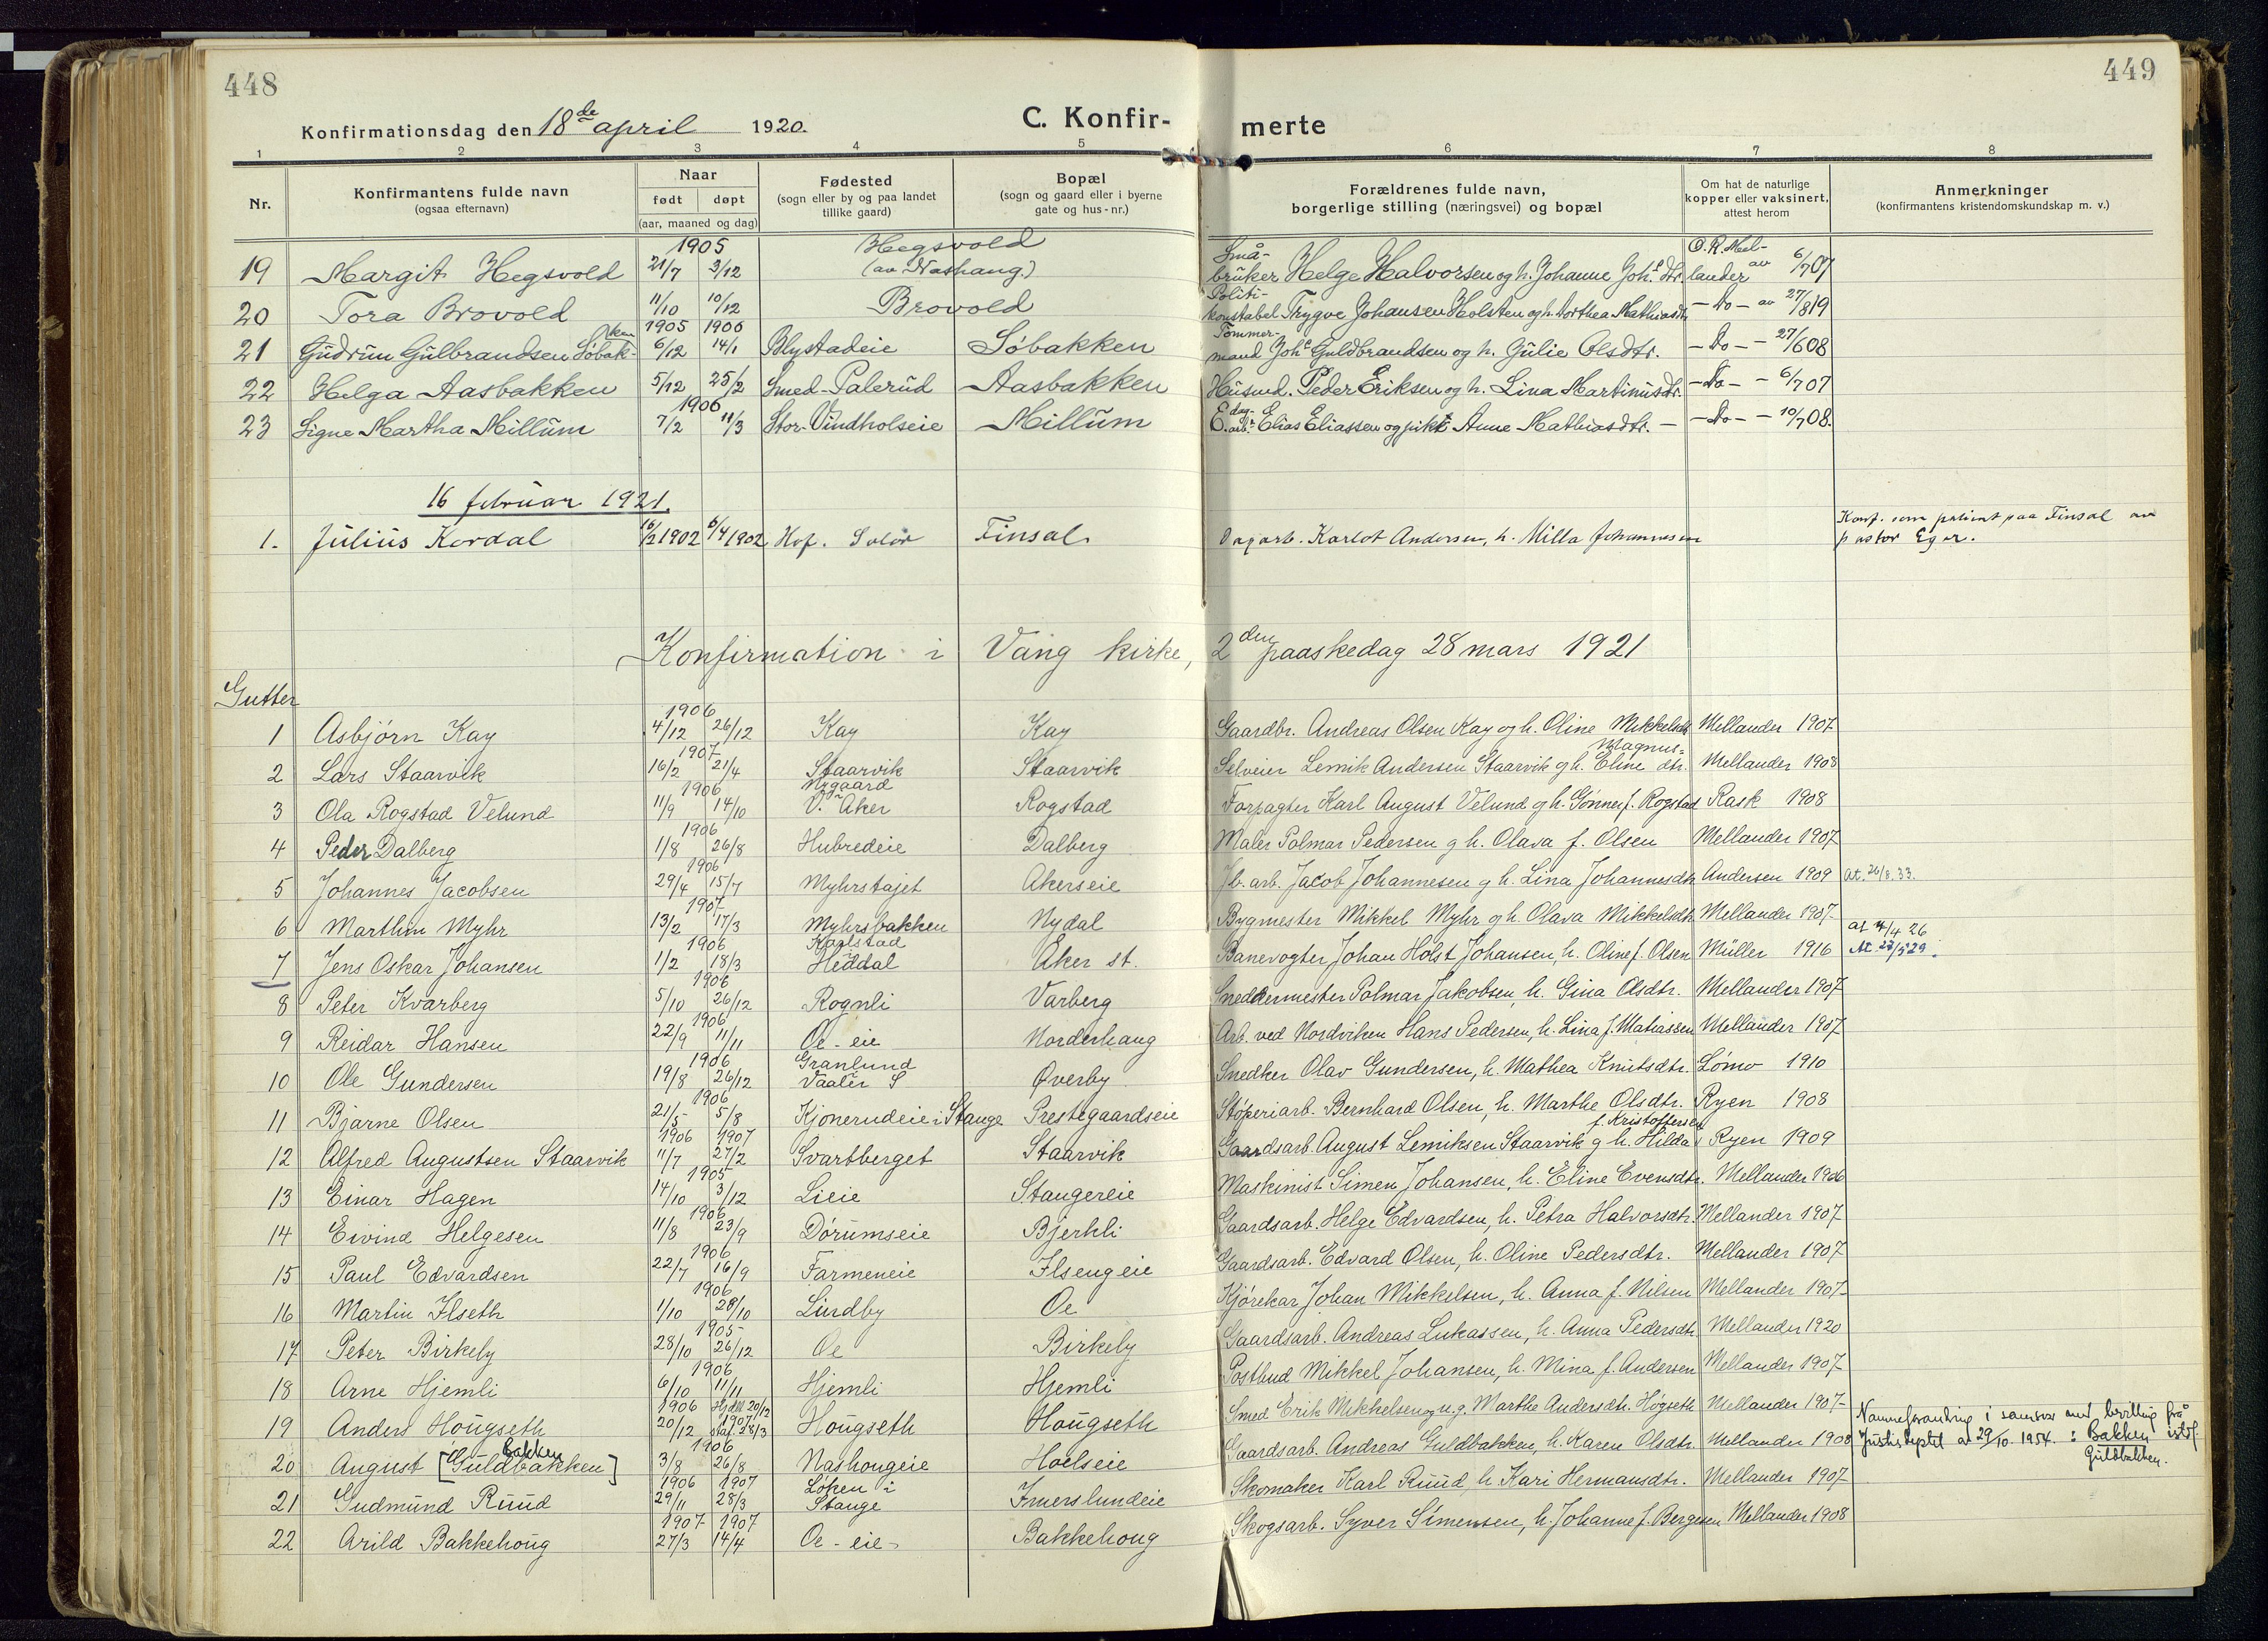 448
449
Konfirmationsdag den 18de april 1920.
C. Konfirmerte
1 2 3 4 5 6 7 8
Nr.
Konfirmantens fulde navn
(ogsaa efternavn)
Naar
født døpt
(aar, maaned og dag)
Fødested
(sogn eller by og paa landet
tillike gaard)
Bopæl
(sogn og gaard eller i byerne
gate og hus-nr.)
Forældrenes fulde navn,
borgerlige stilling (næringsvei) og bopæl
Om hat de naturlige
kopper eller vaksinert,
attest herom
Anmerkninger
(konfirmantens kristendomskundskap m. v.)
19 Margit Hegsvold 1905 21/7 3/12 Hegsvold (av Nashaug.) Små-bruker Helge Halvorsen og h. Johanne Joh.s dtr. O.R. Mellander av 6/7 07
20 Tora Brovold 11/10 10/12 Brovold Politi-konstabel Trygve Johansen Holsten og h. Dorthea Mathiasdtr. - Do - av 27/8 19
21 Gudrun Gulbrandsen Söbakken 1905 1906 6/12 14/1 Blystadeie Söbakken Tømmermand Joh.s Guldbrandsen og h. Gulie Olsdtr. - Do - - 27/6 08
22 Helga Aasbakken 5/12 25/2 Smed-Palerud Aasbakken Husmd. Peder Eriksen og h. Lina Martinusdtr. - Do - - 6/7 07
23 Signe Martha Millum 1906 7/2 11/3 Stor-Vindholseie Millum E. dag-arb. Elias Eliassen og pike Anne Mathiasdtr. - - Do - - 10/7 08.
16 februar 1921.
1. Julius Kordal 16/2 1902 6/4 1902 Hof. Solør Finsal Dagarb. Karlot Andersen, h. Milla Johannesen Konf. som patient paa Finsal av pastor Eger.
Konfirmation i Vang kirke, 2den paaskedag 28 mars 1921
Gutter
1 Asbjörn Kay 1906 4/12 26/12 Kay Kay Gaardbr. Andreas Olsen Kay og h. Oline Mikkelsdtr. Mellander 1907
2 Lars Staarvik 1907 16/2 21/4 Staarvik Staarvik Selveier Lemik Andersen Staarvik og h. Eline Magnus=dtr. Mellander 1908
3 Ola Rogstad Velund 1906 11/9 14/10 Nygaard V. Aker Rogstad Forpagter Karl August Velund og h. Gønner f. Rogstad Rask 1908
4 Peder Dalberg 1906 1/8 26/8 Hubredeie Dalberg Maler Polmar Pedersen og h. Olava f. Olsen Mellander 1907
5 Johannes Jacobsen 1906 29/4 15/7 Myhrstajet Akerseie Jb. arb. Jacob Johannesen og h. Lina Johannesdtr. Andersen 1909 at. 26/8. 33.
6 Marthin Myhr 1907 13/2 17/3 Myhrsbakken Nydal Bygmester Mikkel Myhr og h. Olava Mikkelsdtr. Mellander 1907 at 7/4 26
7 Jens Oskar Johansen 1906 1/2 18/3 Kaalstad Heddal Aker st. Banevogter Johan Holst Johansen, h. Oline f. Olsen Müller 1916 At. 23/5 29.
8 Peter Kvarberg 1906 5/10 26/12 Rognli Varberg Snedkermester Polmar Jakobsen, h. Gina Olsdtr. Mellander 1907
9 Reidar Hansen 1906 22/9 11/11 Oe-eie Norderhaug Arb. ved Nordviken Hans Pedersen, h. Lina f. Matiassen Mellander 1907
10 Ole Gundersen 1906 19/8 26/12 Granlund Vaaler S Øverby Snedker Olav Gundersen, h. Mathea Knutsdtr. Lömo 1910
11 Bjarne Olsen 1906 21/5 5/8 Kjonerudeie i Stange Prestegaardseie Støperiarb. Bernhard Olsen, h. Marthe Olsdtr. Ryen 1908
12 Alfred Augustsen Staarvik 1906 1907 11/7 27/2 Svartberget Staarvik Gaardsarb. August Lemiksen Staarvik og h. Hilda f. Kristoffersen Ryen 1909
13 Einar Hagen 1905 14/10 3/12 Lieie Staugereie Maskinist Simen Johansen, h. Eline Evensdtr. Mellander 1906
14 Eivind Helgesen 1906 11/8 23/9 Dørumseie Bjerkli Gaardsarb. Helge Edvardsen, h. Petra Halvorsdtr. Mellander 1907
15 Paul Edvardsen 1906 22/7 16/9 Farmeneie Ilsengeie Gaardsarb. Edvard Olsen, h. Oline Pedersdtr. Mellander 1907
16 Martin Ilseth 1906 1/10 28/10 Lindby Oe Kjørekar Johan Mikkelsen, h. Anna f. Nilsen Mellander 1907
17 Peter Birkely 1905 28/10 26/12 Oe Birkely Gaardsarb. Andreas Lukassen, h. Anna Pedersdtr. Mellander 1920
18 Arne Hjemli 1906 6/10 11/11 Hjemli Hjemli Postbud Mikkel Johansen, h. Mina f. Andersen Mellander 1907
19 Anders Hougseth 1906 20/12 Hjdøbt 20/12 1907 staf. 28/3 Hougseth Hougseth Smed Erik Mikkelsen og u.g. Marthe Andersdtr. Høgseth Mellander 1907
20 August [Guldbakken] Bakken 1906 3/8 26/8 Nashougeie Hoelseie Gaardsarb. Andreas Guldbakken, h. Karen Olsdtr. Mellander 1908 Navneforandring i samsvar med bevilling frå Justisdeptet av 29/10. 1954. : Bakken istf. Guldbakken.
21 Gudmund Ruud 1906 1907 29/11 28/3 Löken i Stange Imerslundeie Skomaker Karl Ruud, h. Kari Hermansdtr. Mellander 1907
22 Arild Bakkehoug 1907 1907 27/3 14/4 Oe-eie Bakkehoug Skogsarb. Syver Simensen, h. Johanne f. Bergesen Mellander 1908